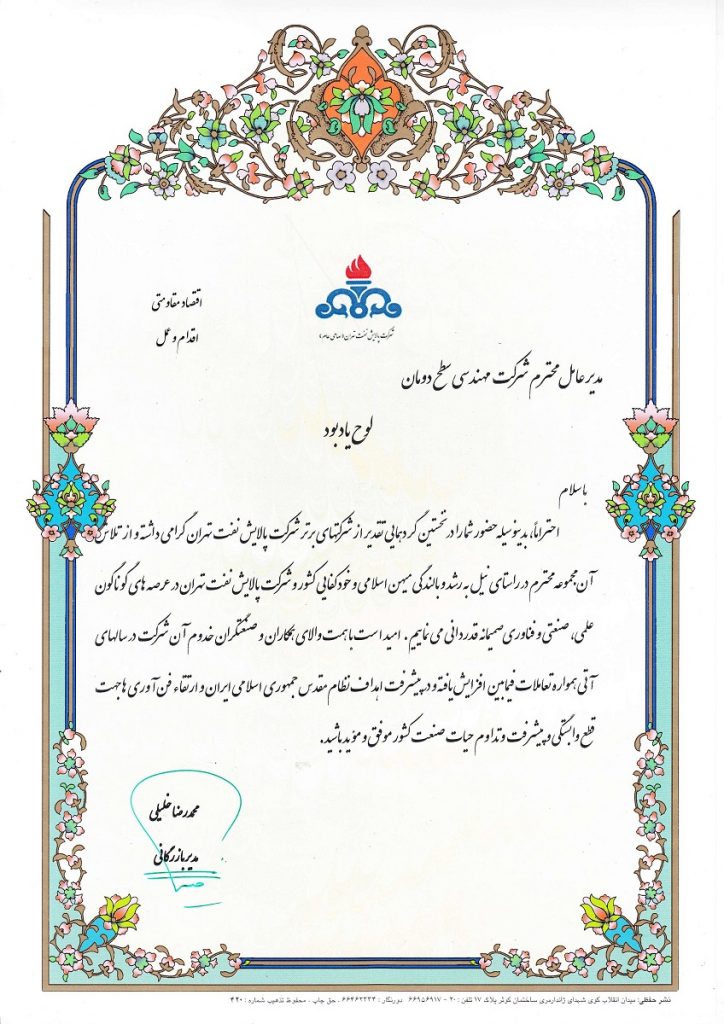 اقتصاد مقاومتی
اقدام و عمل
شرکت پالایش نفت تهران (سهامی عام)
مدیر عامل محترم شرکت مهندسی سطح دومان
لوح یادبود
با سلام
احتراماً، بدینوسیله حضور شما را در نخستین گردهمایی تقدیر از شرکتهای برتر شرکت پالایش نفت تهران گرامی داشته و از تلاش
آن مجموعه محترم در راستای نیل به رشد و بالندگی میهن اسلامی و خودکفایی کشور و شرکت پالایش نفت تهران در عرصه های گوناگون
علمی، صنعتی و فناوری صمیمانه قدردانی می نماییم. امید است با همت والای همکاران و صنعتگران خدوم آن شرکت در سالهای
آتی همواره تعاملات فیمابین افزایش یافته و در پیشرفت اهداف نظام مقدس جمهوری اسلامی ایران و ارتقاء فن آوری ها جهت
قطع وابستگی و پیشرفت و تداوم حیات صنعت کشور موفق و مؤید باشید.
محمدرضا خلیلی
مدیر بازرگانی
نشر حفظی: میدان انقلاب کوی شهدای ژاندارمری ساختمان کوثر پلاک ۱۷ تلفن: ۲۰ - ۶۶۹۵۶۹۱۷ دورنگار: ۶۶۴۶۳۳۳۴ . حق چاپ . محفوظ تذهیب شماره: ۴۴۰